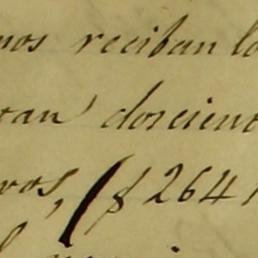 nos reciban lo
tan doscient
vos, ($ 264